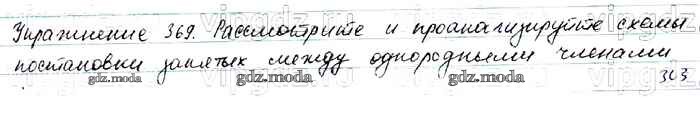 Упражнение 369. Рассмотрите и проанализируйте схемы
постановки запятых между однородными членами
gdz.moda gdz.moda gdz.moda
303